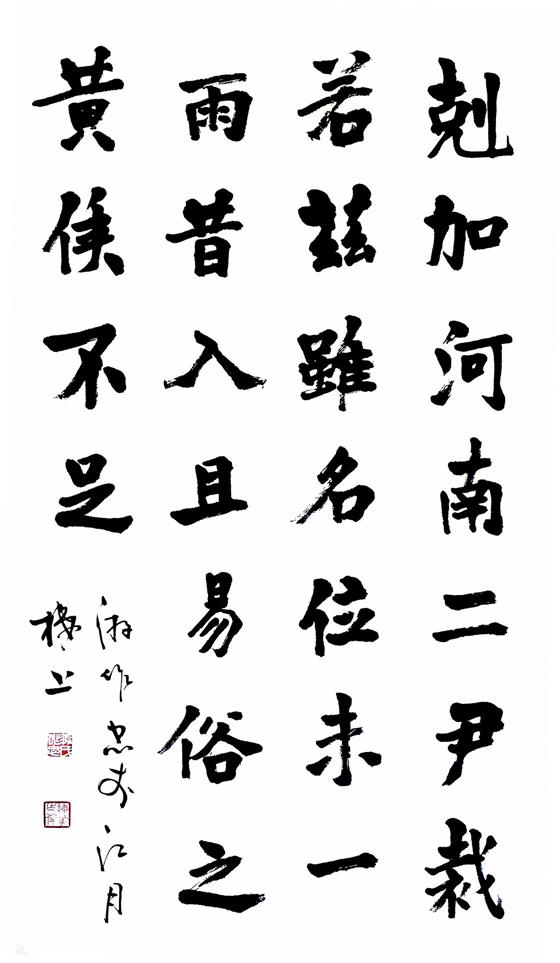 剋加河南二尹裁
若茲雖名位未一
雨昔入且易俗之
黄侯不足
江月
樓上